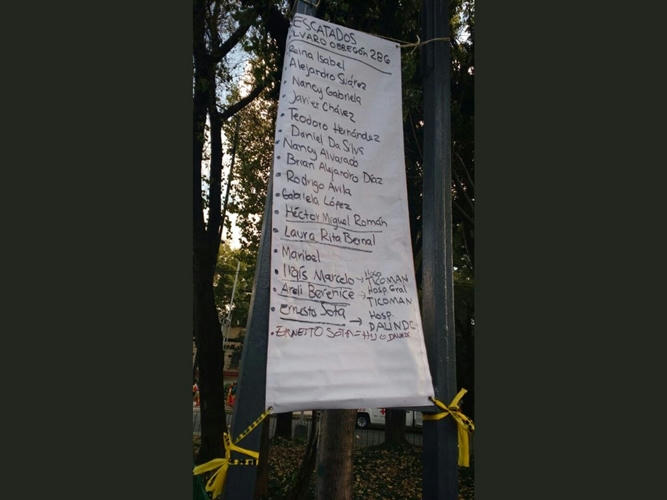 ESCATADOS
LVARO OBREGÓN 286
Raina Isabel
• Alejandro Suárez
• Nancy Gabriela
• Javier Chávez
• Teodoro Hernández
• Daniel Da Silva
• Nancy Alvarado
• Brian Alejandro Díaz
• Rodrigo Ávila
• Gabriela López
• Héctor Miguel Román
• Laura Rita Bernal
• Maribel
• Marcelo → TICOMAN
• Areli Berenice → Hosp. Gral
TICOMAN
• Ernesto Sota → Hosp.
DALINDE
• ERNESTO SOTA =